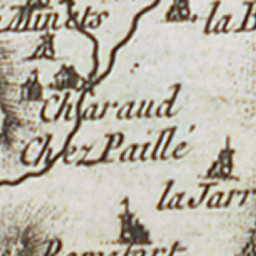 Minets
la B
Charaud
Chez Paillé
la Jarr